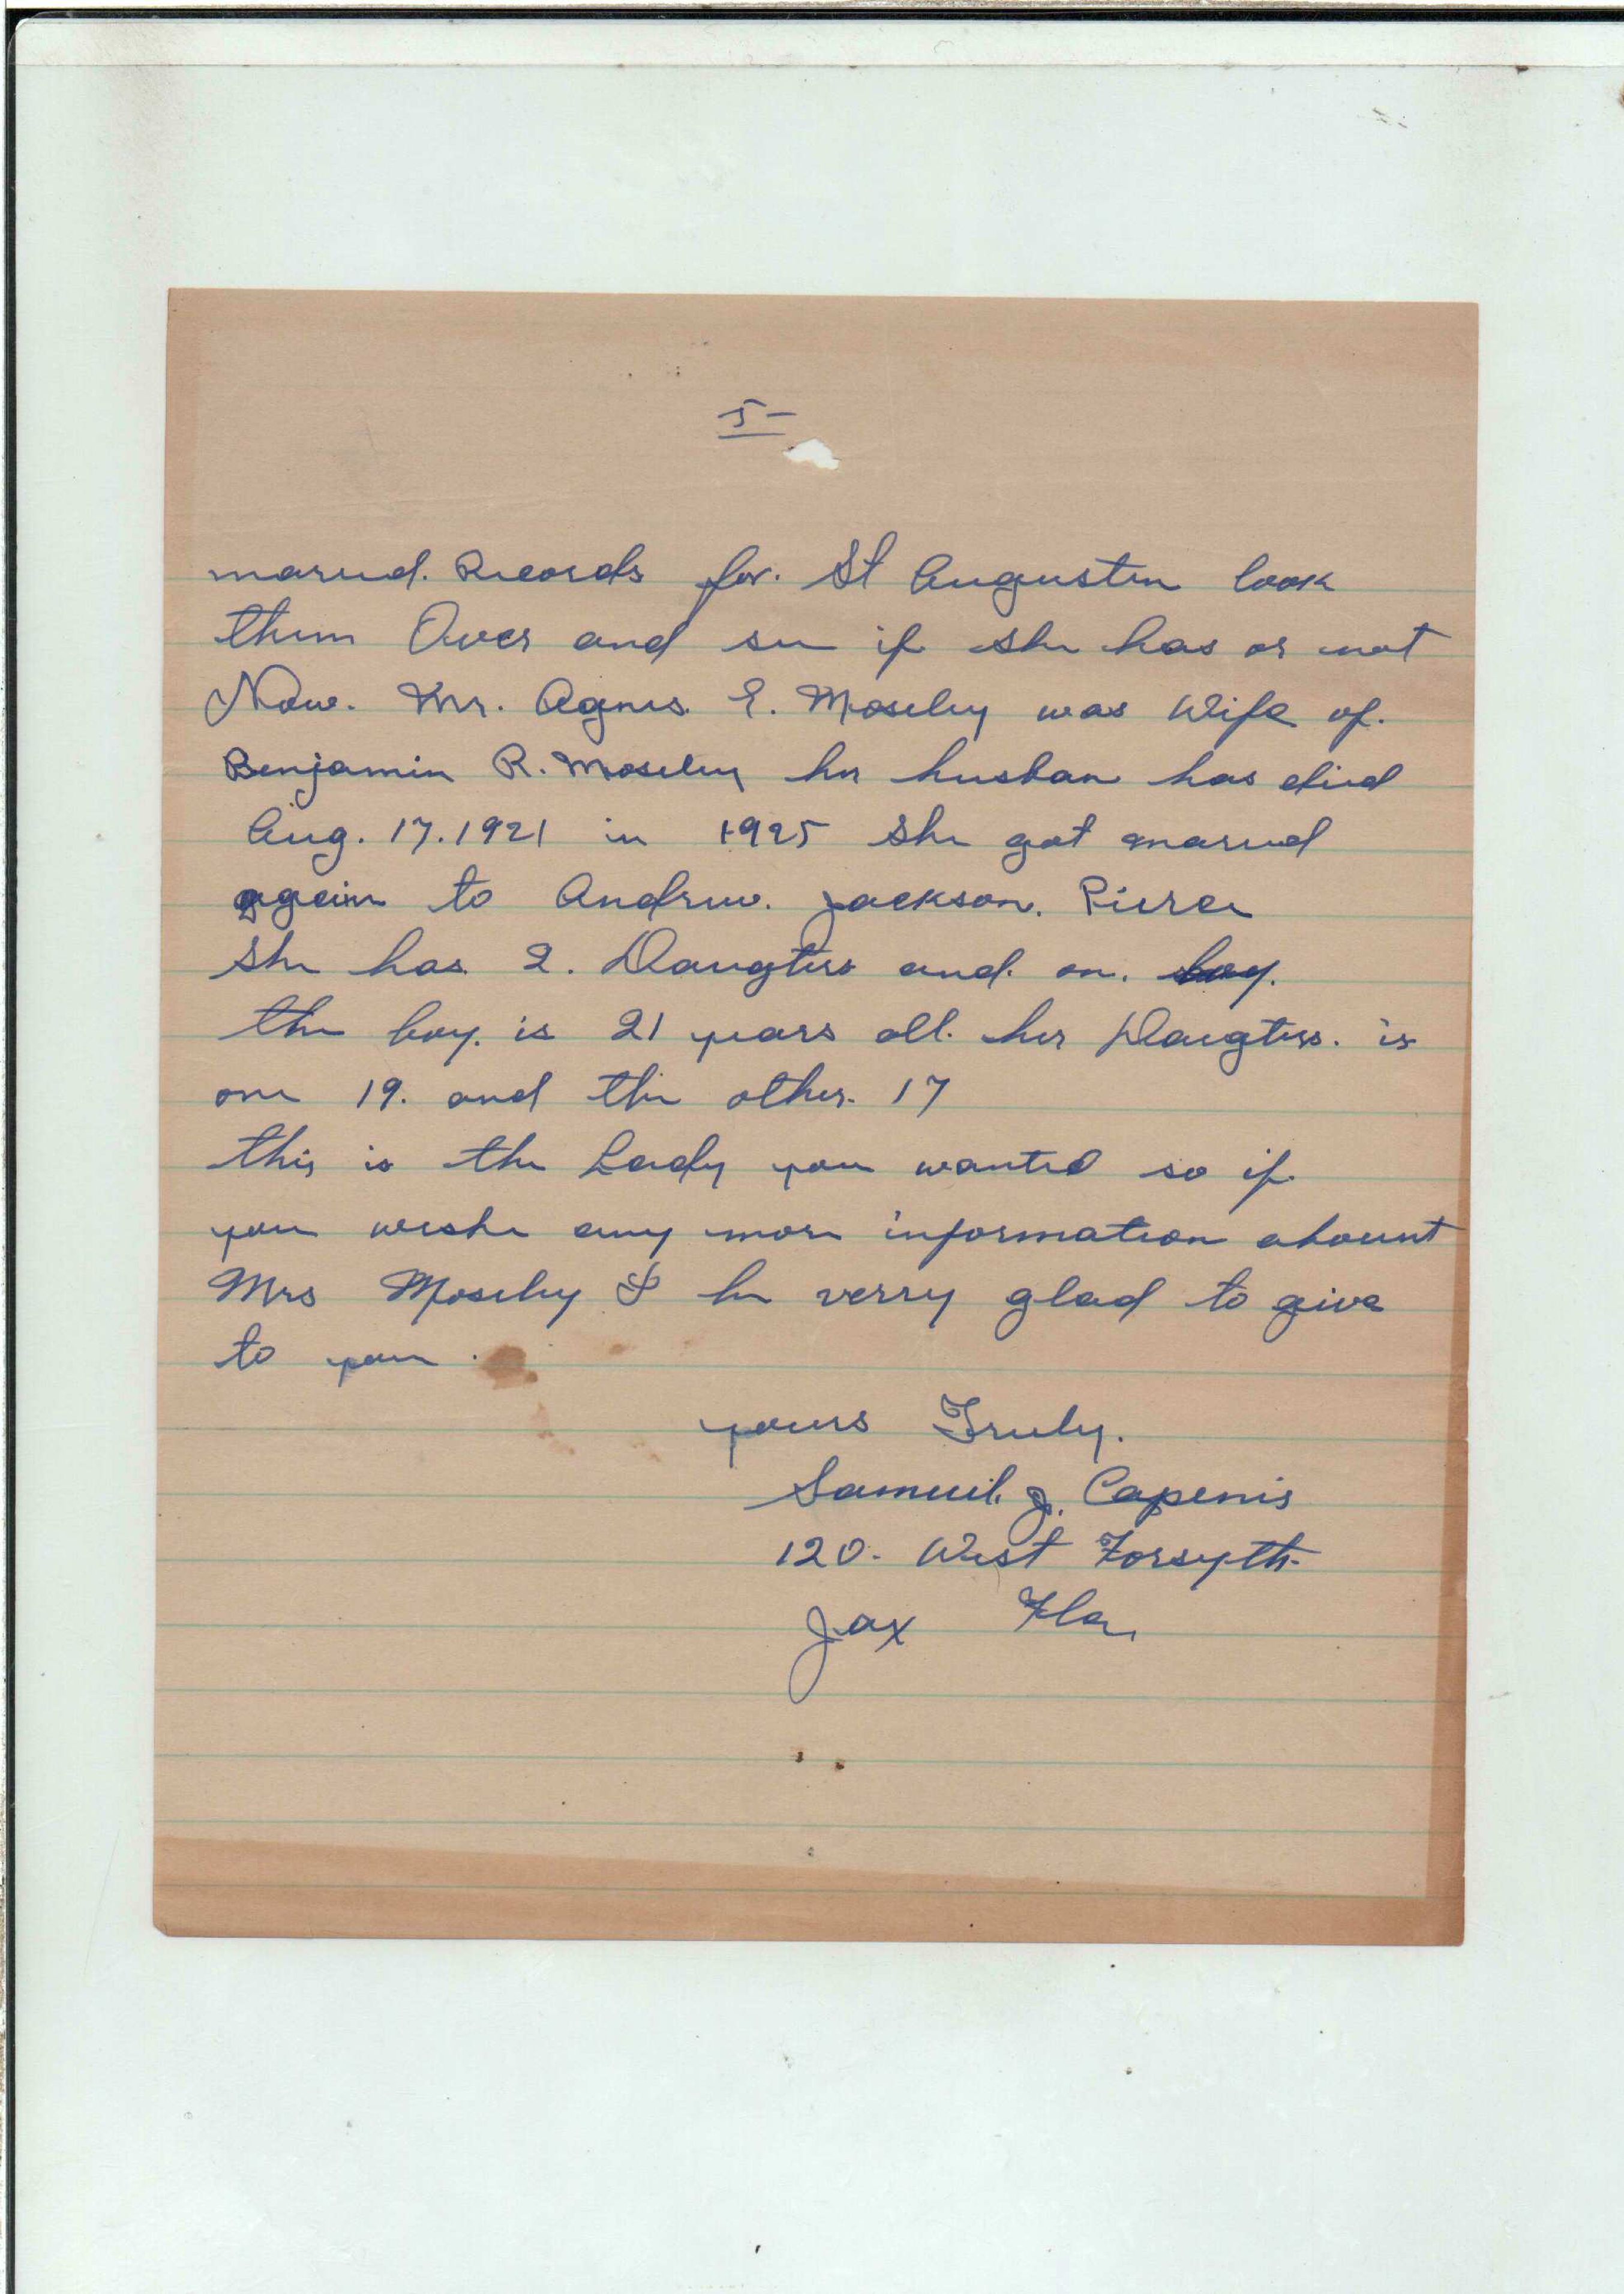 5-
maried. Records for. St Augusten look
them Over and see if she has or not
Now. Mr. Agnes E. Moseley was Wife of.
Benjamin R. Moseley her husban has died
Aug. 17. 1921 in 1925 she got maried
again to Andrew. Jackson. Pierce
She has 2. Daugters and. on. boy.
the boy. is 21 years old. her Daugters. is
one 19. and the other. 17
this is the Lady you wanted so if.
you weshe any more information abount
Mrs Moseley I be verry glad to give
to you.
yours Truly.
Samuel. J. Capenis
120. West Forsyth.
Jax Fla.